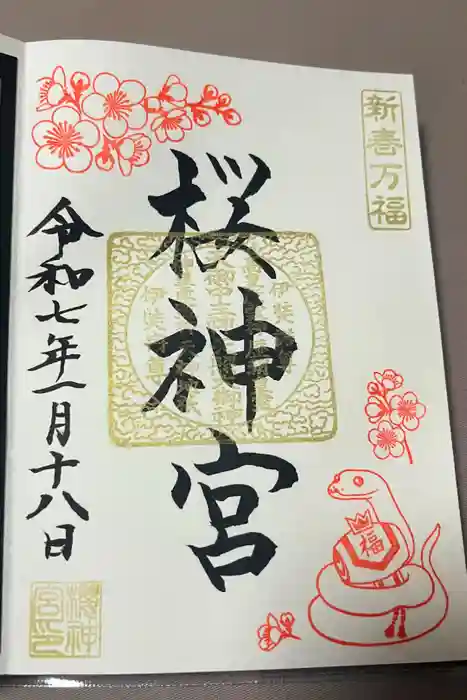 新春万福
桜神宮
令和七年一月十八日
福
桜神
宮印